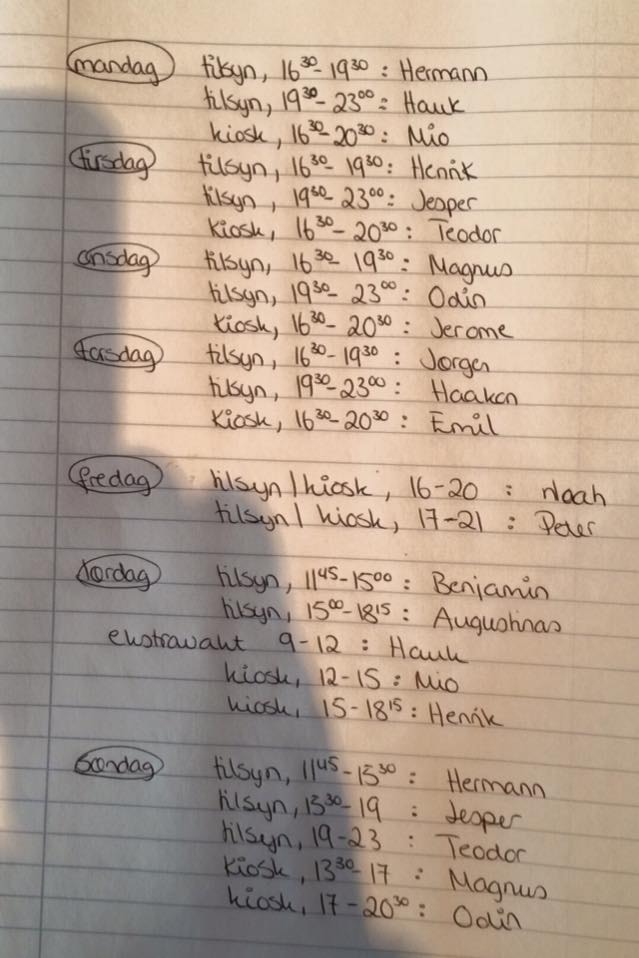 mandag tilsyn, 16³⁰-19³⁰ : Hermann
tilsyn, 19³⁰-23⁰⁰ : Hauk
kiosk, 16³⁰-20³⁰ : Mio
tirsdag tilsyn, 16³⁰-19³⁰ : Henrik
tilsyn, 19³⁰-23⁰⁰ : Jesper
Kiosk, 16³⁰-20³⁰ : Teodor
onsdag tilsyn, 16³⁰-19³⁰ : Magnus
tilsyn, 19³⁰-23⁰⁰ : Odin
Kiosk, 16³⁰-20³⁰ : Jerome
torsdag tilsyn, 16³⁰-19³⁰ : Jørgen
tilsyn, 19³⁰-23⁰⁰ : Haakon
Kiosk, 16³⁰-20³⁰ : Emil
fredag tilsyn/kiosk, 16-20 : Noah
tilsyn/kiosk, 17-21 : Peter
lørdag tilsyn, 11⁴⁵-15⁰⁰ : Benjamin
tilsyn, 15⁰⁰-18¹⁵ : Augustinas
ekstravakt 9-12 : Hauk
kiosk, 12-15 : Mio
kiosk, 15-18¹⁵ : Henrik
søndag tilsyn, 11⁴⁵-15³⁰ : Hermann
tilsyn, 15³⁰-19 : Jesper
tilsyn, 19-23 : Teodor
Kiosk, 13³⁰-17 : Magnus
kiosk, 17-20³⁰ : Odin